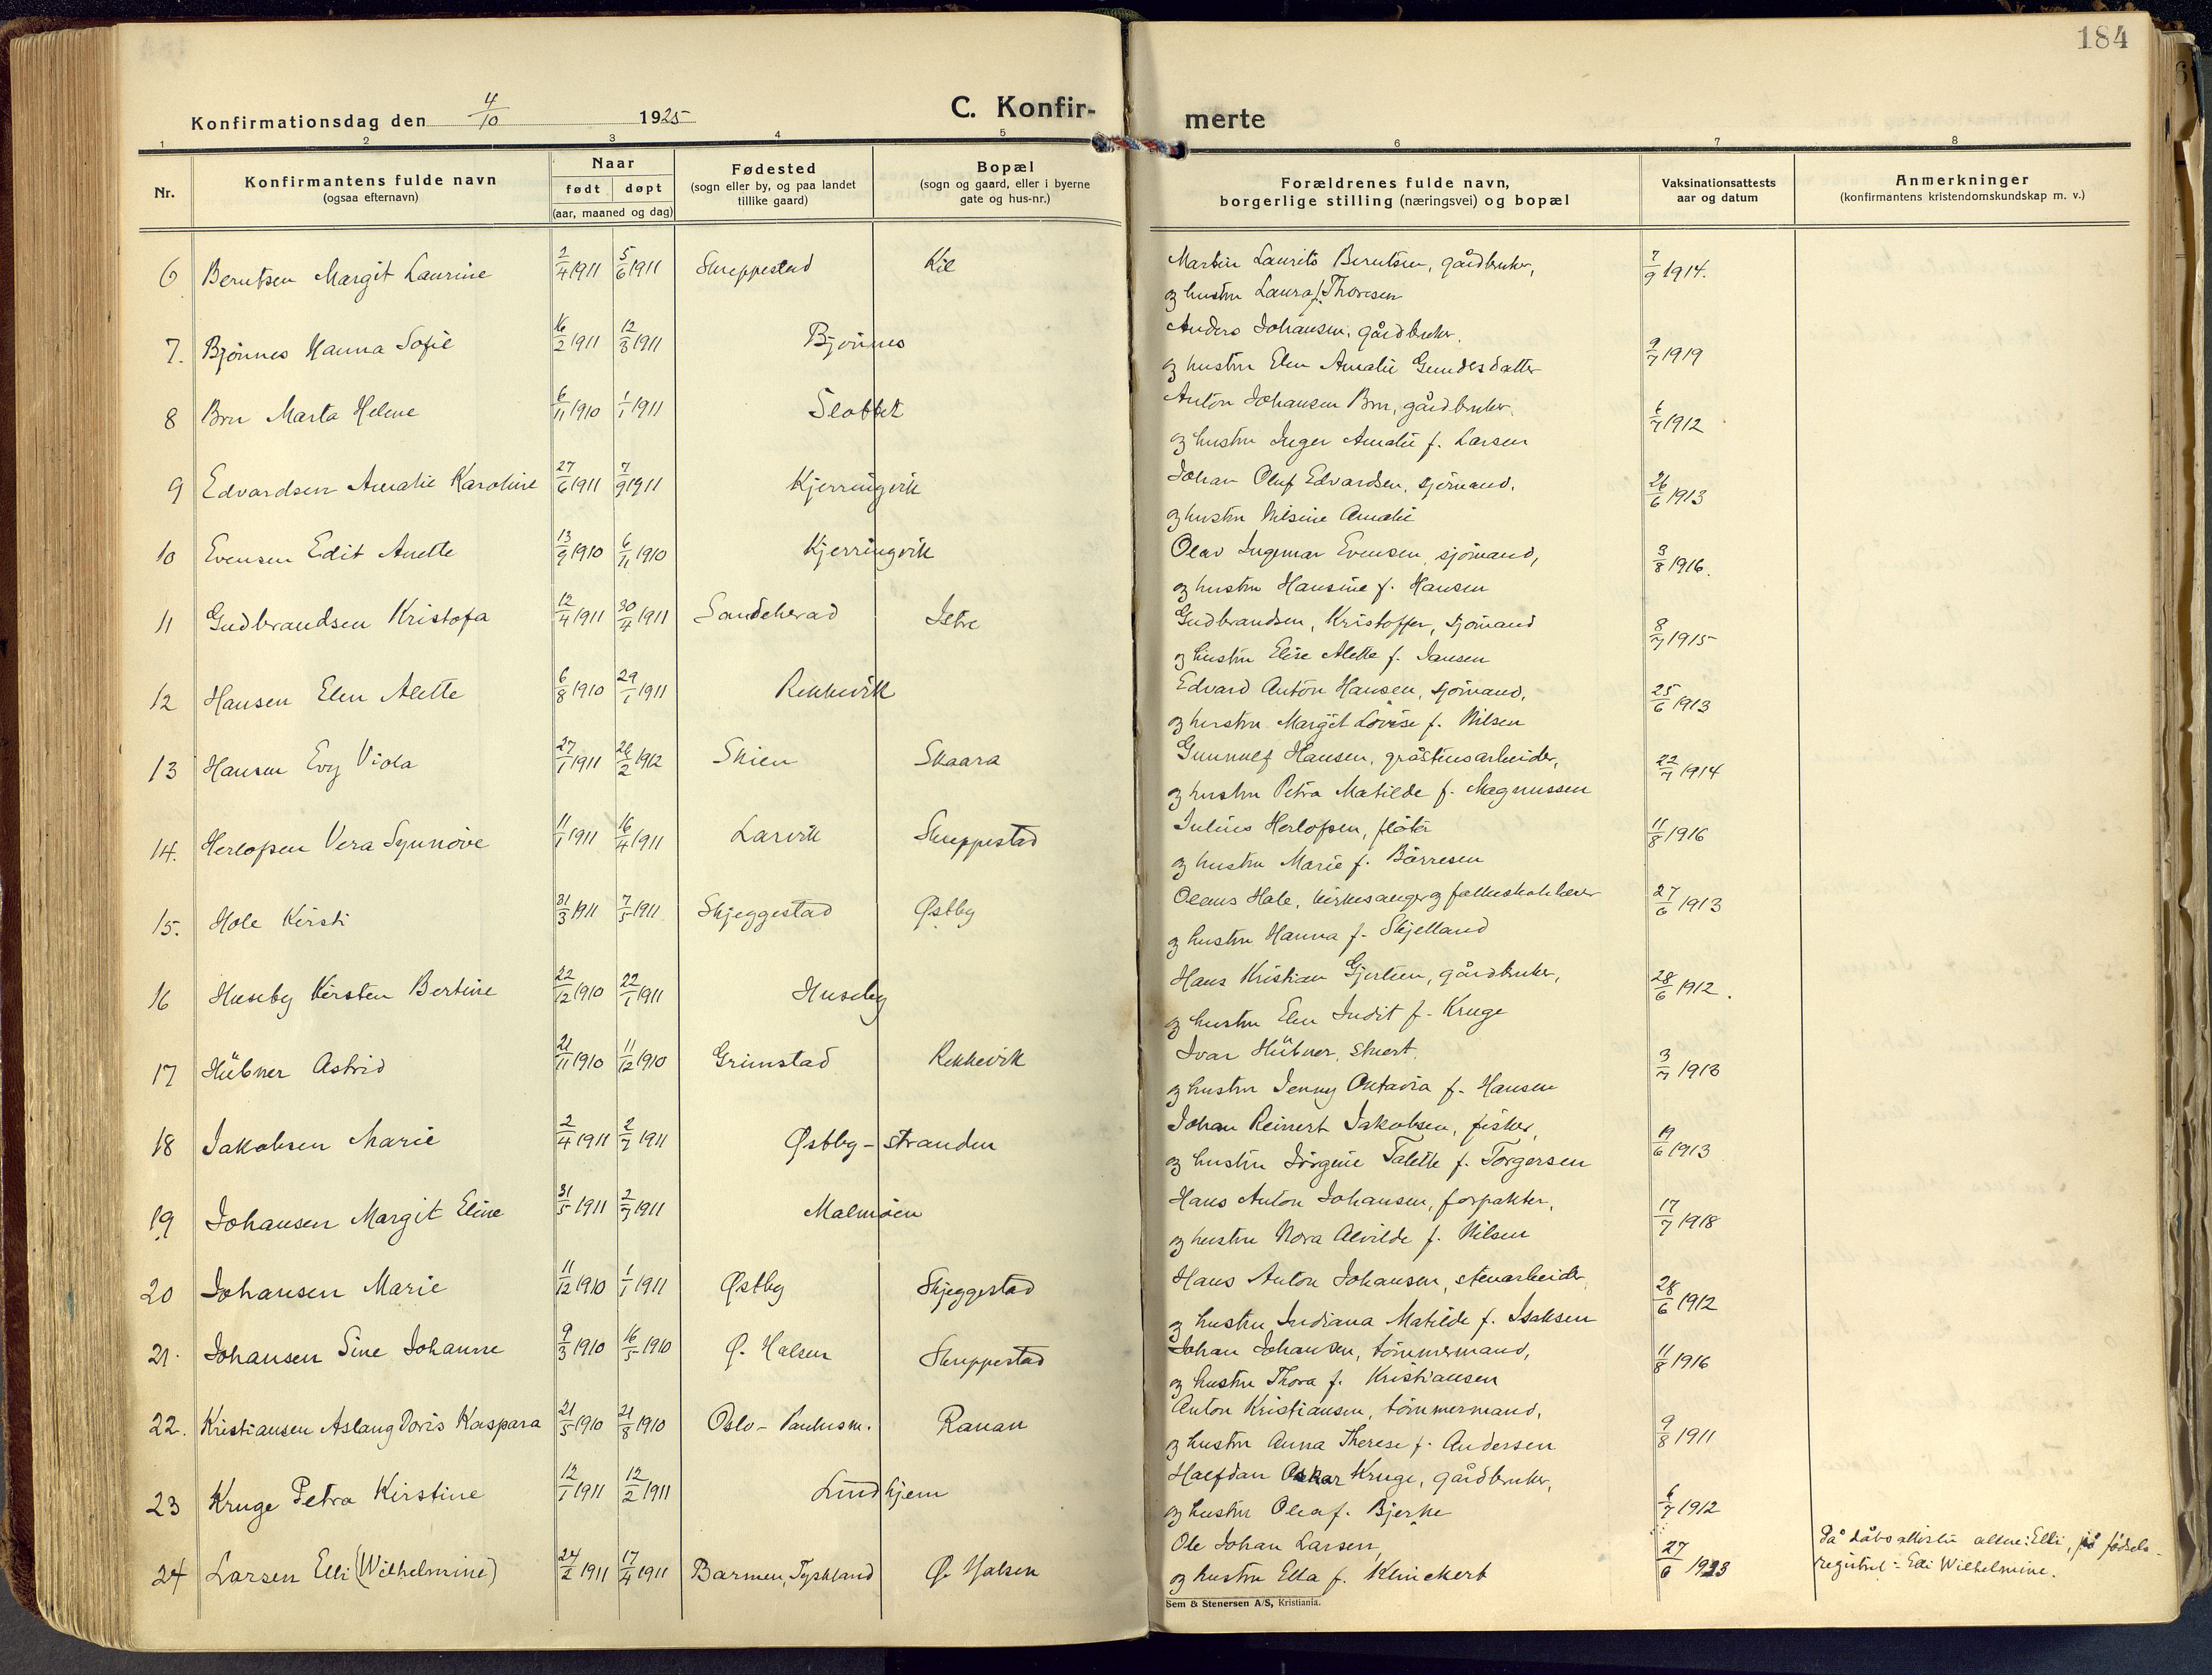 184
Konfirmationsdag den 4/10 1925
C. Konfir-
merte
1 2 3 4 5 6 7 8
Nr.
Konfirmantens fulde navn
(ogsaa efternavn)
Naar
født døpt
(aar, maaned og dag)
Fødested
(sogn eller by, og paa landet
tillike gaard)
Bopæl
(sogn og gaard, eller i byerne
gate og hus-nr.)
Forældrenes fulde navn,
borgerlige stilling (næringsvei) og bopæl
Vaksinationsattests
aar og datum
Anmerkninger
(konfirmantens kristendomskundskap m. v.)
6 Berntsen Margit Laurine 2/4 1911 5/6 1911 Skreppestad Kil Martin Laurits Berntsen, gårdbruker, 7/9 1914.
og hustru Laura f. Thoresen
7. Bjønnes Hanna Sofie 16/2 1911 12/3 1911 Bjønnes Anders Johansen, gårdbruker. 9/7 1919
og hustru Elen Amalie Gundesdatter
8 Bru Marta Helene 6/11 1910 1/1 1911 Slottet Anton Johansen Bru, gårdbruker. 6/7 1912
og hustru Inger Amalie f. Larsen
9 Edvardsen Amalie Karoline 27/6 1911 7/9 1911 Kjerringvik Johan Oluf Edvardsen, sjømand, 26/6 1913
og hustru Nilsine Amalie
10 Evensen Edit Anette 13/9 1910 6/11 1910 Kjerringvik Olav Ingemar Evensen, sjømand, 3/8 1916.
og hustru Hansine f. Hansen
11 Gudbrandsen Kristofa 12/4 1911 30/4 1911 Sandeherad Istre Gudbrandsen, Kristoffer, sjømand 8/7 1915
og hustru Elise Alette f. Jansen
12 Hansen Elen Alette 6/8 1910 29/1 1911 Rekkevik Edvard Anton Hansen, sjømand, 25/6 1913
og hustru Margit Lovise f. Nilsen
13 Hansen Evy Viola 27/1 1911 26/2 1912 Skien Skaara Gunnulf Hansen, gråstensarbeider, 22/7 1914
og hustru Petra Matilde f. Magnussen
14. Herlofsen Vera Synnøve 11/1 1911 16/4 1911 Larvik Skreppestad Julius Herlofsen, fløter 11/8 1916
og hustru Marie f. Børresen
15. Hole Kirsti 31/3 1911 7/5 1911 Skjeggestad Østby Olaus Hole, kirkesanger og folkeskolelærer 27/6 1913
og hustru Hanna f. Skjelland
16 Huseby Kirsten Bertine 22/12 1910 22/1 1911 Huseby Hans Kristian Gjertsen, gårdbruker, 28/6 1912.
og hustru Elen Indit f. Kruge
17 Hübner Astrid 21/11 1910 11/12 1910 Grimstad Rekkevik Ivar Hübner, stuert. 3/7 1913
og hustru Jenny Oktavia f. Hansen
18 Jakobsen Marie 2/4 1911 2/7 1911 Østby-stranden Johan Reinert Jakobsen, fisker, 19/6 1913
og hustru Jørgine Talette f. Torgersen
19 Johansen Margit Eline 31/5 1911 2/7 1911 Malmøen Hans Anton Johansen, forpakter, 17/7 1918
og hustru Nora Alvilde f. Nilsen
20 Johansen Marie 11/12 1910 1/1 1911 Østby Skjeggestad Hans Anton Johansen, stenarbeider, 28/6 1912
og hustru Indiana Matilde f. Isaksen
21. Johansen Sine Johanne 9/3 1910 16/5 1910 Ø. Halsen Skreppestad Johan Johansen, tømmermand, 11/8 1916
og hustru Thora f. Kristiansen
22. Kristiansen Aslaug Doris Kaspara 21/5 1910 21/8 1910 Oslo - Paulus m. Ranan Anton Kristiansen, tømmermand, 9/8 1911
og hustru Anna Therese f. Andersen
23 Kruge Petra Kirstine 12/1 1911 12/2 1911 Lindhjem Halfdan Oskar Kruge, gårdbruker, 6/7 1912
og hustru Olea f. Bjerke
24 Larsen Elli (Wilhelmine) 24/2 1911 17/4 1911 Barmen, Tyskland Ø. Halsen Ole Johan Larsen, 27/6 1923 På dåbsattesten alene: Elli, på fødsels-
og hustru Ella f. Klinckert registret: Elli Wilhelmine.
Sem & Stenersen A/S, Kristiania.